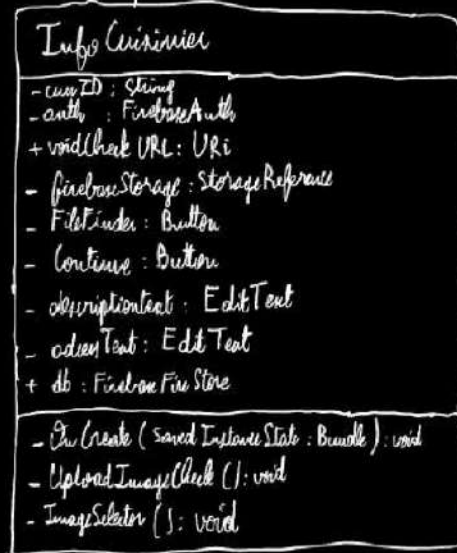 Info Cuisinier
- curr ID : String
- auth : FirebaseAuth
+ voidCheck URL : URi
- firebaseStorage : StorageReference
- FileFinder : Button
- Continue : Button
- descriptiontext : EditText
- adressText : Edit Text
+ db : Firebase Fire Store
- On Create ( saved Instance State : Bundle ) : void
- Upload Image Check () : void
- Image Selector () : void